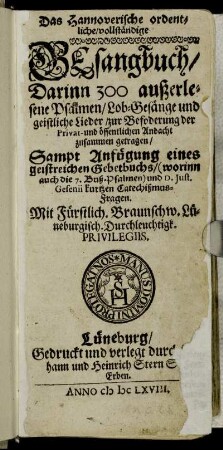 Das Hannoverische ordent-
liche/vollständige
GEsangbuch/
Darinn 300 außerle-
sene Psalmen/Lob-Gesänge und
geistliche Lieder/zur Beförderung der
Privat- und öffentlichen Andacht
zusammen getragen/
Sampt Anfügung eines
geistreichen Gebetbuchs/(worinn
auch die 7. Buß-Psalmen) und D. Just.
Gesenii kurtzen Catechismus-
Fragen.
Mit Fürstlich. Braunschw. Lü-
neburgisch. Durchleuchtigk.
PRIVILEGIIS.
Lüneburg/
Gedruckt und verlegt durch
hann und Heinrich Stern S
Erben.
ANNO cIɔ Iɔc LXVIII.